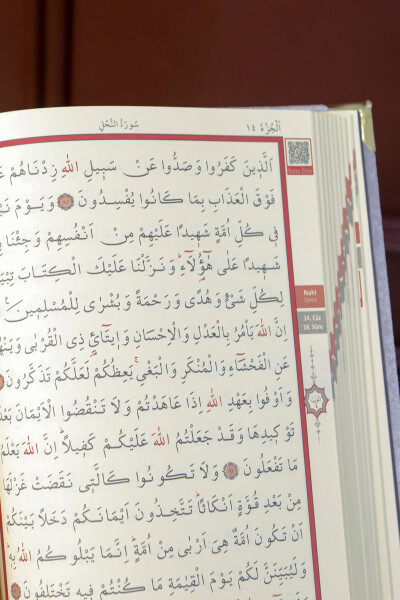 سُورَةُ النَّحْلِ
اَلْجُزْءُ ١٤
اَلَّذٖينَ كَفَرُوا وَصَدُّوا عَنْ سَبٖيلِ اللّٰهِ زِدْنَاهُمْ
فَوْقَ الْعَذَابِ بِمَا كَانُوا يُفْسِدُونَ ٨٨ وَيَوْمَ
فٖى كُلِّ اُمَّةٍ شَهٖيدًا عَلَيْهِمْ مِنْ اَنْفُسِهِمْ وَجِئْنَا
شَهٖيدًا عَلٰى هٰٓؤُ۬لَٓاءِ وَنَزَّلْنَا عَلَيْكَ الْكِتَابَ
لِكُلِّ شَىْءٍ وَهُدًى وَرَحْمَةً وَبُشْرٰى لِلْمُسْلِمٖينَ
اِنَّ اللّٰهَ يَاْمُرُ بِالْعَدْلِ وَالْاِحْسَانِ وَاٖيتَٓائِ ذِى الْقُرْبٰى
عَنِ الْفَحْشَٓاءِ وَالْمُنْكَرِ وَالْبَغْىِ يَعِظُكُمْ لَعَلَّكُمْ تَذَكَّرُونَ
وَاَوْفُوا بِعَهْدِ اللّٰهِ اِذَا عَاهَدْتُمْ وَلَا تَنْقُضُوا الْاَيْمَانَ
تَوْكٖيدِهَا وَقَدْ جَعَلْتُمُ اللّٰهَ عَلَيْكُمْ كَفٖيلًا اِنَّ اللّٰهَ
مَا تَفْعَلُونَ ٩١ وَلَا تَكُونُوا كَالَّتٖى نَقَضَتْ غَزْلَهَا
مِنْ بَعْدِ قُوَّةٍ اَنْكَاثًا تَتَّخِذُونَ اَيْمَانَكُمْ دَخَلًا بَيْنَكُمْ
اَنْ تَكُونَ اُمَّةٌ هِىَ اَرْبٰى مِنْ اُمَّةٍ اِنَّمَا يَبْلُوكُمُ اللّٰهُ بِهٖ
وَلَيُبَيِّنَنَّ لَكُمْ يَوْمَ الْقِيٰمَةِ مَا كُنْتُمْ فٖيهِ تَخْتَلِفُونَ
Nahl
Sûresi
14. Cüz
16. Sûre